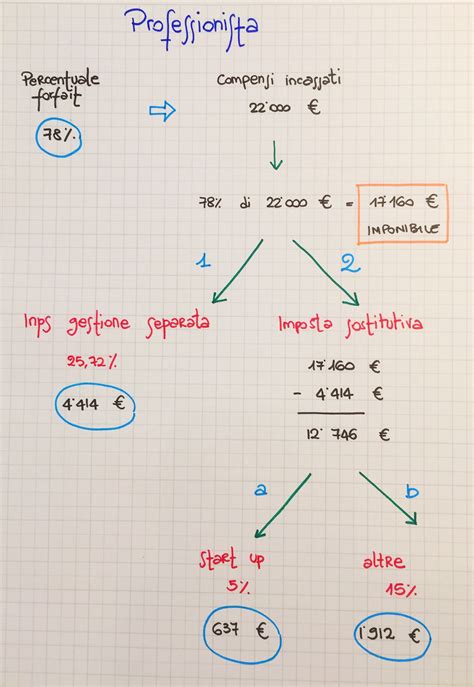 Professionista
Percentuale
forfait
78%
Compensi incassati
22'000 €
78% di 22'000 € = 17'160 €
IMPONIBILE
1
2
Inps gestione separata
25,72%
4'414 €
Imposta sostitutiva
17'160 €
- 4'414 €
12'746 €
a
b
Start up
5%
637 €
altre
15%
1'912 €